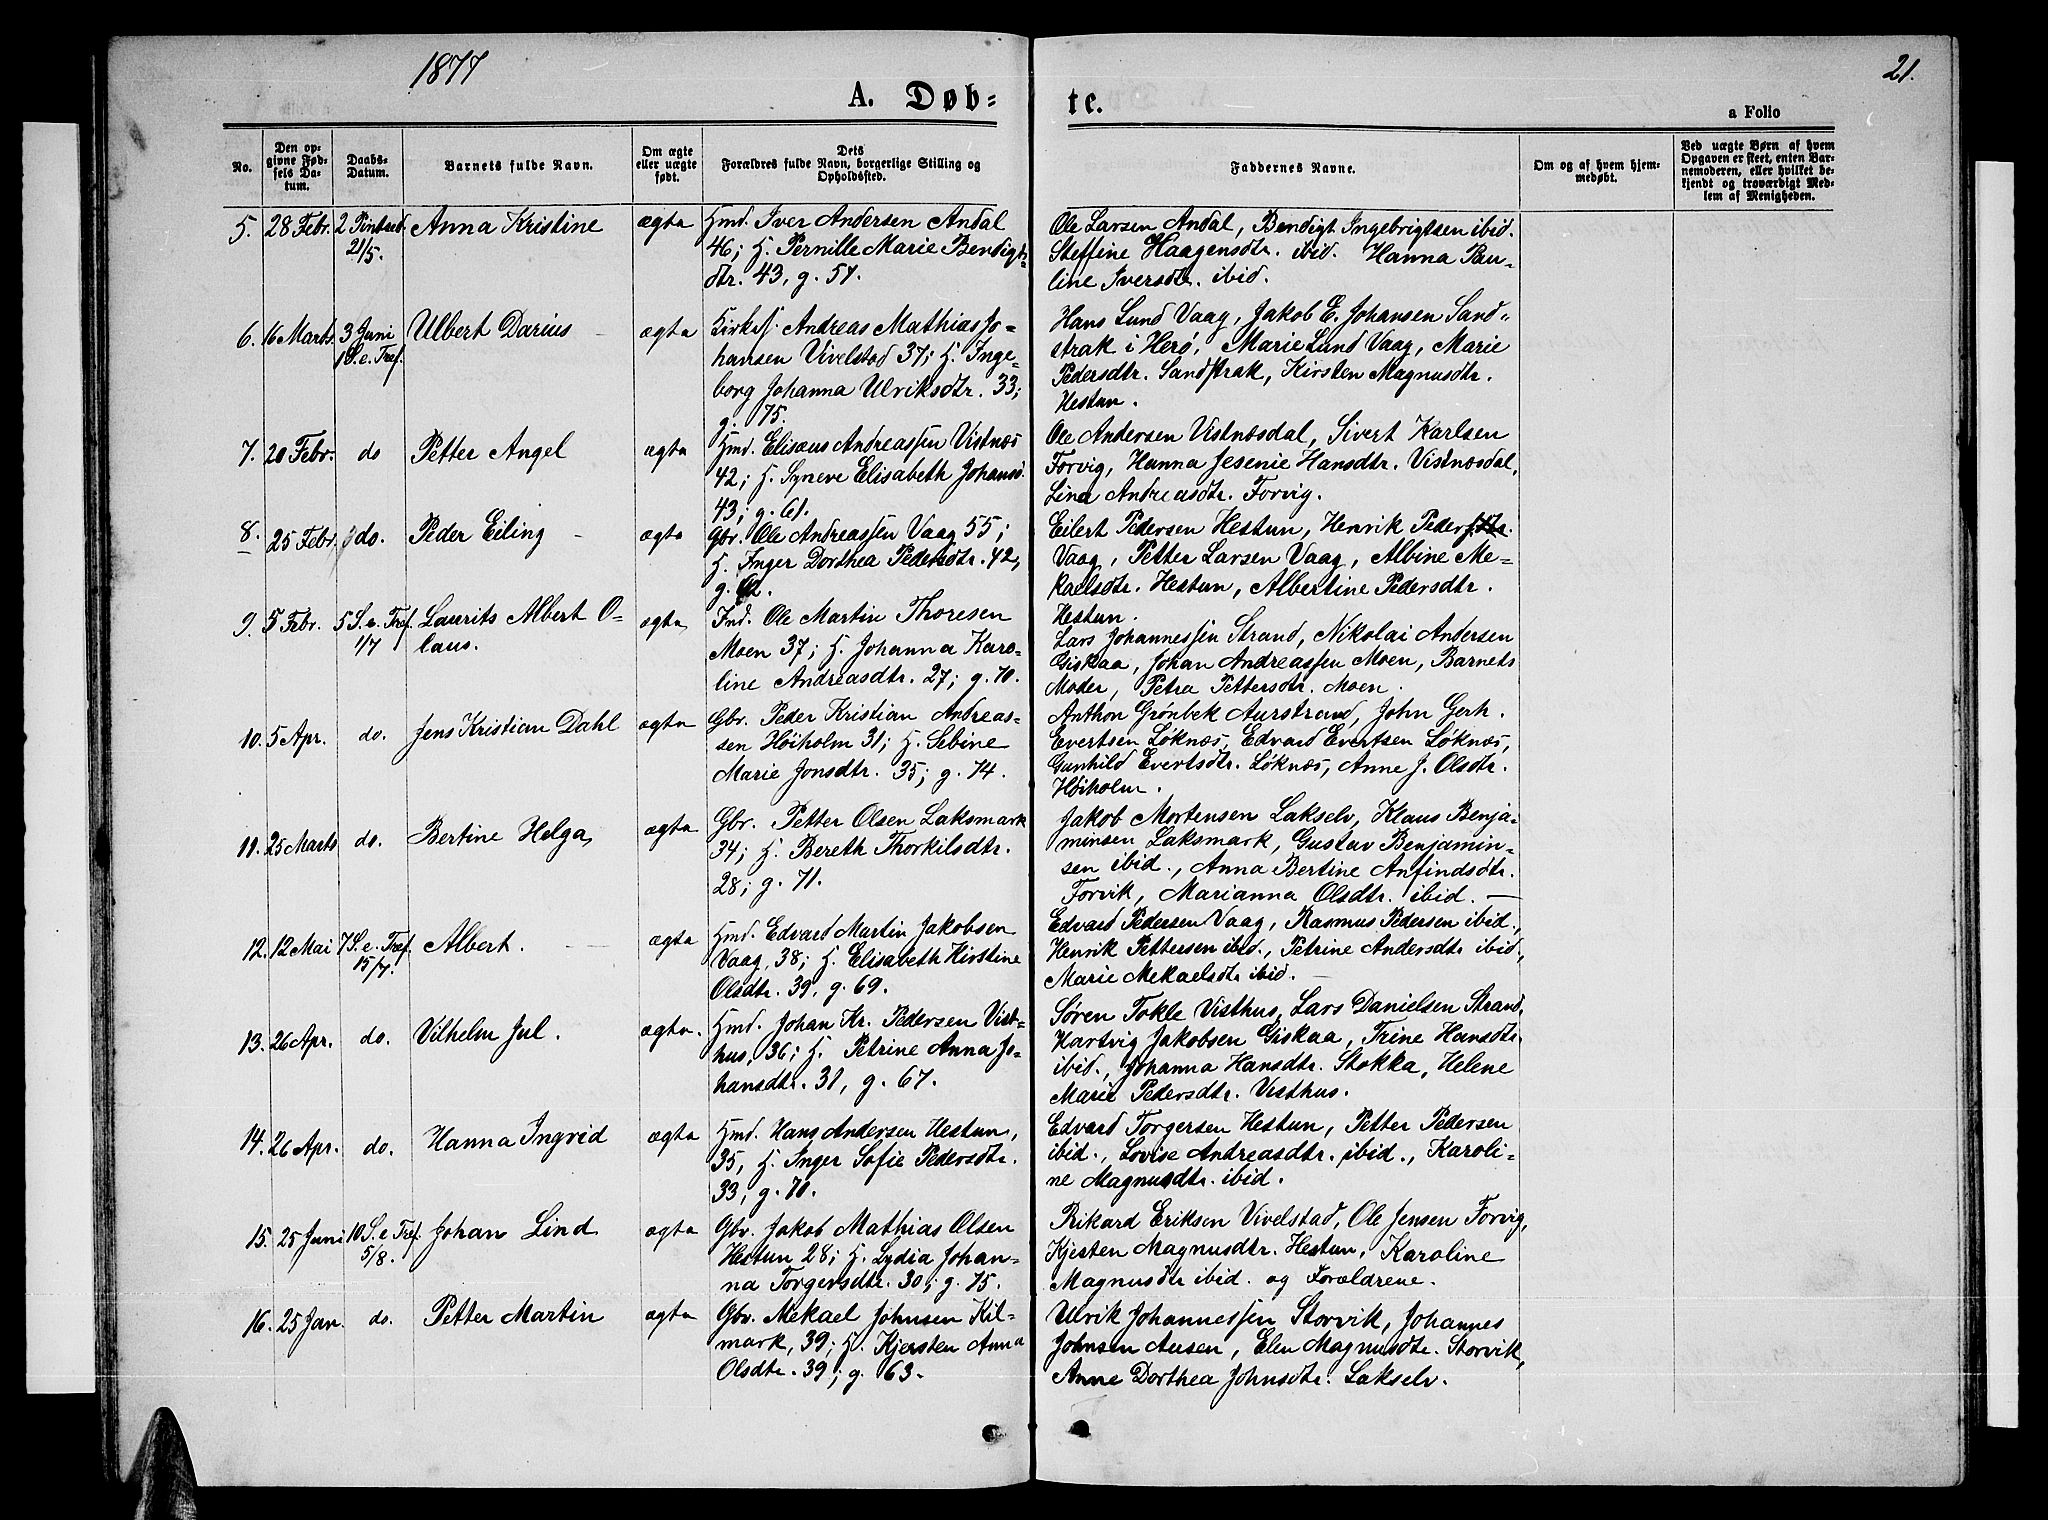 1877
21.
A. Døb-
te.
a Folio
No.
Den op-
givne Fød-
sels Da-
tum.
Daabs-
Datum.
Barnets fulde Navn.
Om ægte
eller uægte
født.
Dets
Forældres fulde Navn, borgerlige Stilling og
Opholdssted.
Faddernes Navne.
Om og af hvem hjem-
medøbt.
Ved uægte Børn af hvem
Opgaven er skeet, enten Bar-
nemoderen, eller hvilket be-
kjendt og troværdigt Med-
lem af Menigheden.
5. 28 Febr. 2 Pintsed. 21/5. Anna Kristine ægta
Hmd. Iver Andersen Andal
46; H. Pernille Marie Bendigts
dtr. 43, g. 57.
Ole Larsen Andal, Bendigt Ingebrigtsen ibid.
Steffine Haagensdtr. ibid. Hanna Pau-
line Iversdtr. ibid.
6. 16 Marts 3 Juni 1 S. e. Tref. Ulbert Darius ægta
Kirkes. Andreas Mathias Jo-
hansen Vivelstad 37; H. Inge-
borg Johanna Ulriksdtr. 33;
g. 75.
Hans Lund Vaag, Jakob E. Johansen Sand-
strak i Herø, Marie Lund Vaag, Marie
Pedersdtr. Sandstrak, Kirsten Magnusdtr.
Hestun.
7. 20 Febr. do Petter Angel ægta
Hmd. Elisæus Andreassen Vistnæs
42; H. Syneve Elisabeth Johansd.
43; g. 61.
Ole Andersen Vistnæsdal, Sivert Karlsen
Forvig, Hanna Jesenie Hansdtr. Vistnæsdal,
Lina Andreasdtr. Forvig.
8. 25 Febr. do. Peder Eiling ægta
Gbr. Ole Andreassen Vaag 55;
H. Inger Dorthea Pedersdtr. 42,
g. 62.
Eilert Pedersen Hestun, Henrik Peder
Vaag, Petter Larsen Vaag, Albine Me-
kaelsdtr. Hestun, Albertine Pedersdtr.
Hestun.
9. 5 Febr. 5 S. e. Tref. 1/7 Laurits Albert O-
laus. ægta
Ind. Ole Martin Thoresen
Moen 37; H. Johanna Karo-
line Andreasdtr. 27; g. 70.
Lars Johannessen Strand, Nikolai Andersen
Giskaa, Johan Andreassen Moen, Barnets
Moder, Petra Pettersdtr. Moen.
10. 5 Apr. do. Jens Kristian Dahl ægta
Gbr. Peder Kristian Andreas-
sen Høiholm 31; H. Sebine
Marie Jonsdtr. 35; g. 74.
Anthon Grønbek Aurstrand, John Gerh.
Evertsen Løknæs, Edvard Evertsen Løknæs,
Gunhild Evertsdtr. Løknæs, Anne J. Olsdtr.
Høiholm.
11. 25 Marts do. Bertine Helga ægta
Gbr. Petter Olsen Laksmark
34; H. Bereth Thorkilsdtr.
28; g. 71.
Jakob Mortensen Lakselv, Klaus Benja-
minsen Laksmark, Gustav Benjamin-
sen ibid., Anna Bertine Anfindsdtr.
Forvik, Marianna Olsdtr. ibid. —
12. 12 Mai 7 S. e. Tref. 15/7. Albert. ægta
Hmd. Edvard Martin Jakobsen
Vaag, 38; H. Elisabeth Kirstine
Olsdtr. 39, g. 69.
Edvard Pedersen Vaag, Rasmus Pedersen ibid.,
Henrik Pettersen ibid., Petrine Andersdtr ibid.,
Marie Mekaelsdtr ibid. —
13. 26 Apr. do. Vilhelm Jul. ægta.
Hmd. Johan Kr. Pedersen Vist-
hus, 36; H. Petrine Anna Jo-
hansdtr. 31, g. 67.
Søren Tokle Visthus, Lars Danielsen Strand,
Hartvig Jakobsen Giskaa, Trine Hansdtr.
ibid., Johanna Hansdtr. Stokka, Helene
Marie Pedersdtr. Visthus.
14. 26 Apr. do. Hanna Ingvid ægta
Hmd. Hans Andersen Hestun,
35, H. Inger Sofie Pedersdtr.
33, g. 70.
Edvard Torgersen Hestun, Petter Pedersen
ibid., Lovise Andreasdtr. ibid., Karoli-
ne Magnusdtr. ibid.
15. 25 Juni 10 S. e Tref. 5/8. Johan Lind ægta
Gbr. Jakob Mathias Olsen
Hestun 28; H. Lydia Johan-
na Torgersdtr. 30; g. 75.
Rikard Eriksen Vivelstad, Ole Jensen Forvig,
Kjesten Magnusdtr. Hestun, Karoline
Magnusdtr ibid. og Forældrene.
16. 25 Jan. do. Petter Martin ægta
Gbr. Mekael Johnsen Kil-
mark, 39; H. Kjersten Anna
Olsdtr. 39; g. 63.
Ulrik Johannessen Storvik, Johannes
Johnsen Ausen, Elen Magnusdtr. Storvik,
Anne Dorthea Johnsdtr. Lakselv.